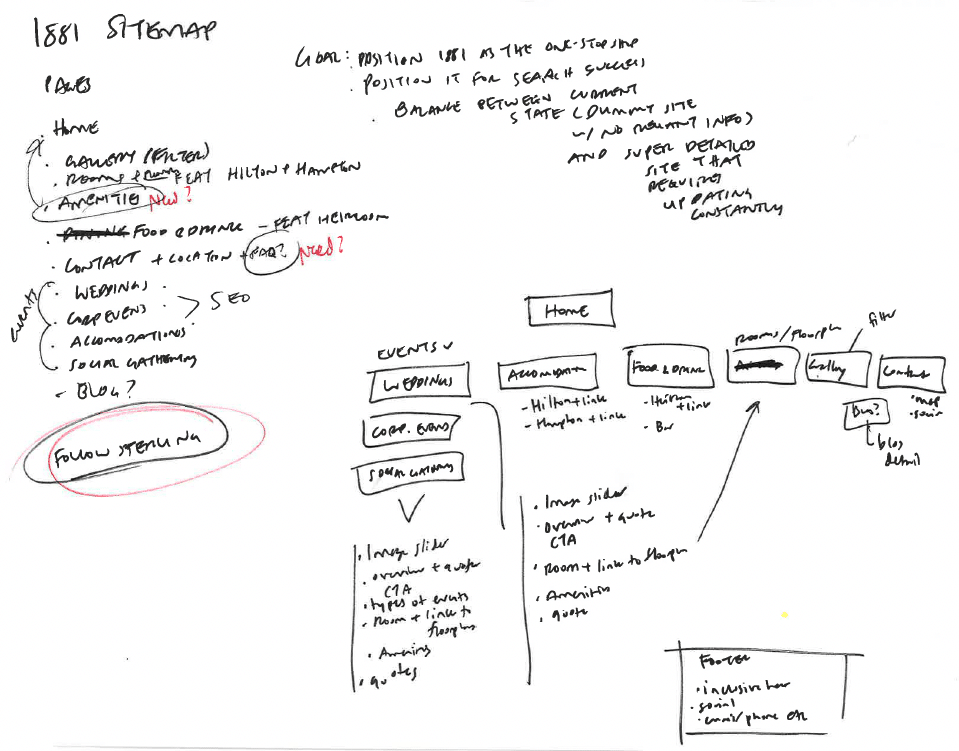 1881 SITEMAP
GOAR: POSITION 1881 AS THE ONE-STOP SHOP
. POSITION IT FOR SEARCH SUCCESS
. BALANCE BETWEEN CURRENT
STATE (DUMMY SITE
w/ NO RELEVANT INFO)
AND SUPER DETAILED
SITE THAT
REQUIRES
UPDATING
CONSTANTLY
PAGES
. HOME
. GALLERY (FILTER)
. ROOMS + FEAT HILTON + HAMPTON
. AMENITIES Need?
. DINING FOOD & DRINK - FEAT HEIRLOOM
. CONTACT + LOCATION + FAQ? Need?
EVENTS
. WEDDINGS .
. CORP EVENS . > SEO
. ACCOMODATIONS .
. SOCIAL GATHERING
- BLOG?
FOLLOW STERLING
HOME
EVENTS
WEDDINGS
CORP. EVENS
SOCIAL GATHERING
. Image slider
. overview + quote
CTA
. types of events
- Room + link to
floorplans
. quotes
ACCOMODATN
- Hilton + link
- Hampton + link
. Image slider
. overview + quote
CTA
. Room + link to floorpln
. Amenities
. quote
FOOD & DRINK
- Heirloom
+ link
- Bar
Rooms/floorpln
Gallery
filter
Contact
. map
. social
Blog?
blog
detail
FOOTER
. social
. email/phone etc